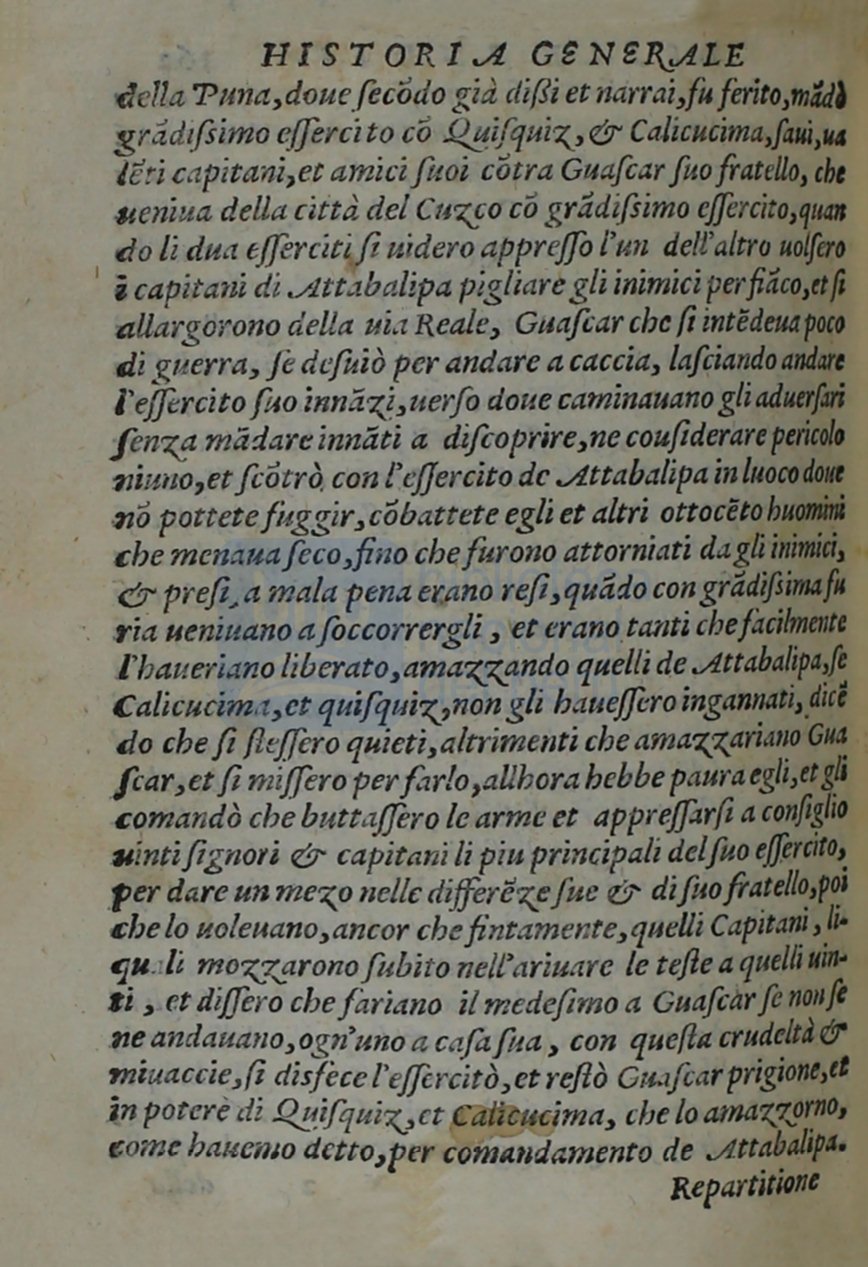 HISTORIA GENERALE
della Puna, doue ſecōdo già diſſi et narrai, fu ferito, mādò
grādiſsimo eſſercito cō Quiſquiz, & Calicucima, ſaui, ua
lēti capitani, et amici ſuoi cōtra Guaſcar ſuo fratello, che
ueniua della città del Cuzco cō grādiſsimo eſſercito, quan
do li dua eſſerciti ſi uidero appreſſo l'un dell'altro uolſero
i capitani di Attabalipa pigliare gli inimici per fiāco, et ſi
allargorono della uia Reale, Guaſcar che ſi intēdeua poco
di guerra, ſe deſuiò per andare a caccia, laſciando andare
l'eſſercito ſuo innāzi, uerſo doue caminauano gli aduerſari
ſenza mādare innāti a diſcoprire, ne couſiderare pericolo
niuno, et ſcōtrò con l'eſſercito de Attabalipa in luoco doue
nō pottete fuggir, cōbattete egli et altri ottocēto huomini
che menaua ſeco, fino che furono attorniati da gli inimici,
& preſi, a mala pena erano reſi, quādo con grādiſsima fu
ria ueniuano a ſoccorrergli, et erano tanti che facilmente
l'haueriano liberato, amazzando quelli de Attabalipa, ſe
Calicucima, et quiſquiz, non gli haueſſero ingannati, dicē
do che ſi ſteſſero quieti, altrimenti che amazzariano Gua
ſcar, et ſi miſſero per farlo, allhora hebbe paura egli, et gli
comandò che buttaſſero le arme et appreſſarſi a conſiglio
uinti ſignori & capitani li piu principali del ſuo eſſercito,
per dare un mezo nelle differēze ſue & di ſuo fratello, poi
che lo uoleuano, ancor che fintamente, quelli Capitani, li-
quali mozzarono ſubito nell'ariuare le teſte a quelli uin-
ti, et diſſero che fariano il medeſimo a Guaſcar ſe non ſe
ne andauano, ogn'uno a caſa ſua, con queſta crudeltà &
miuaccie, ſi disfece l'eſſercitò, et reſtò Guaſcar prigione, et
in poterè di Quiſquiz, et Calicucima, che lo amazzorno,
come hauemo detto, per comandamento de Attabalipa.
Repartitione